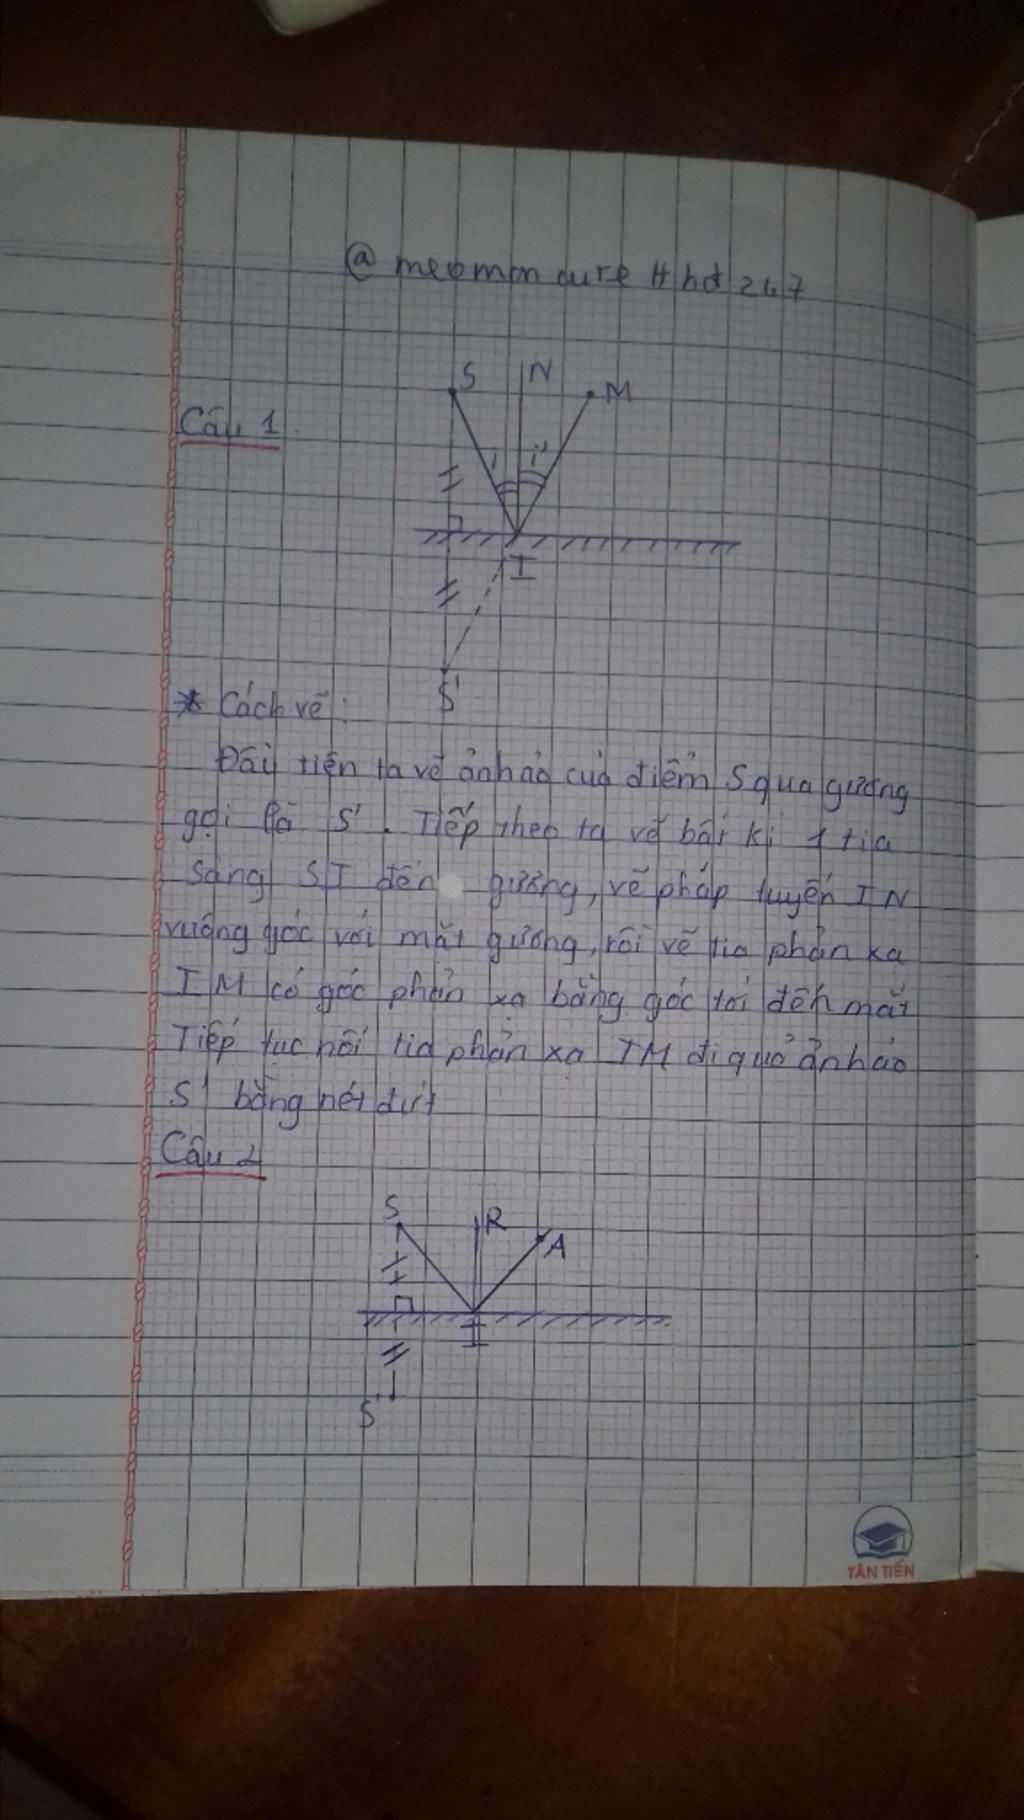 @ meomon cute # hd 247
S N M
Câu 1.
i i'
I
S'
* Cách vẽ:
Đầu tiên ta vẽ ảnh ảo của điểm S qua gương
gọi là S'. Tiếp theo ta vẽ bất kì 1 tia
sáng SI đến gương, vẽ pháp tuyến IN
vuông góc với mặt gương, rồi vẽ tia phản xạ
IM có góc phản xạ bằng góc tới đến mắt
Tiếp tục nối tia phản xạ IM đi quả ảnh ảo
S' bằng nét đứt
Câu 2
S R
A
I
S'
TÂN TIẾN